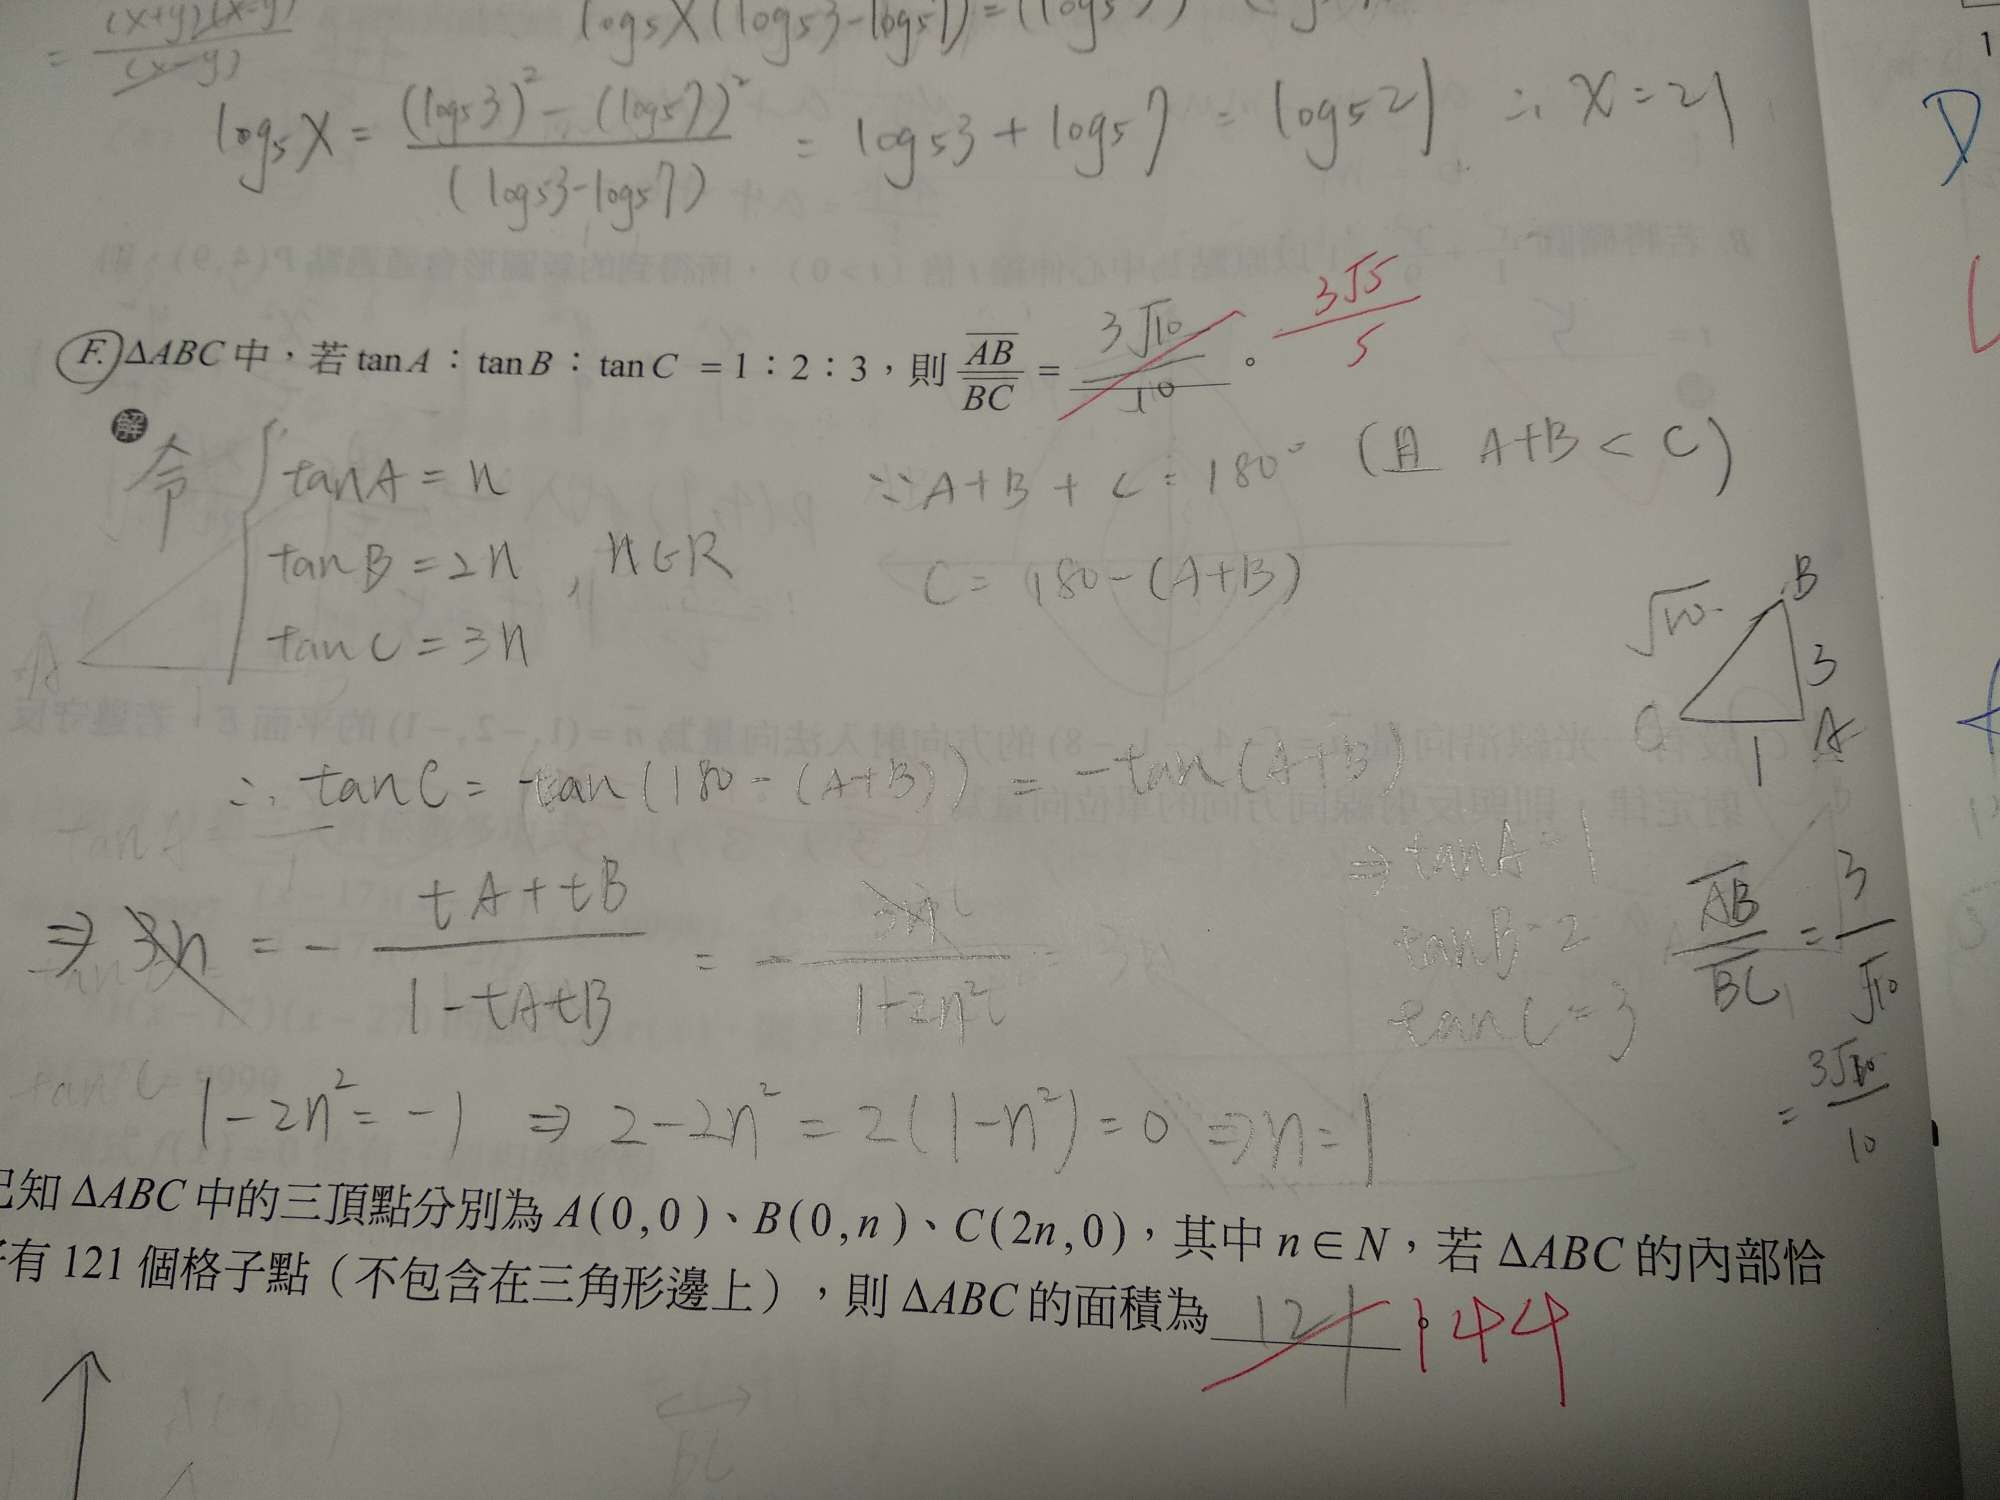 = (x+y)(x-y) / (x-y)
log₅X = ((log₅3)² - (log₅7)²) / (log₅3-log₅7) = log₅3 + log₅7 = log₅21 ∴ X=21
F. ΔABC 中，若 tan A：tan B：tan C = 1：2：3，則 AB / BC = 3√10 / 10 。 3√5 / 5
解
令 { tanA = n
tanB = 2n , n∈R
tanC = 3n
∵ A+B+C = 180° (且 A+B < C)
C = 180-(A+B)
√10 B 3 C 1 A
∴ tanC = tan(180-(A+B)) = -tan(A+B)
⇒ 3n = - (tA+tB) / (1-tAtB) = -
⇒ tanA=1
tanB=2
tanC=3
AB / BC = 3 / √10
= 3√10 / 10
1-2n² = -1 ⇒ 2-2n² = 2(1-n²) = 0 ⇒ n=1
已知 ΔABC 中的三頂點分別為 A(0,0)、B(0,n)、C(2n,0)，其中 n∈N，若 ΔABC 的內部恰
有 121 個格子點（不包含在三角形邊上），則 ΔABC 的面積為 121 。 144